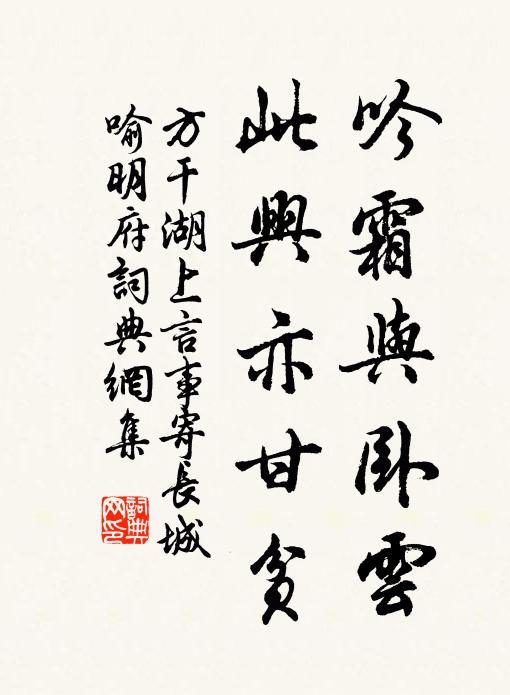 吟霜與卧雲
此興亦甘貧
方干湖上言事寄長城
喻明府詞典網集
詞典网印